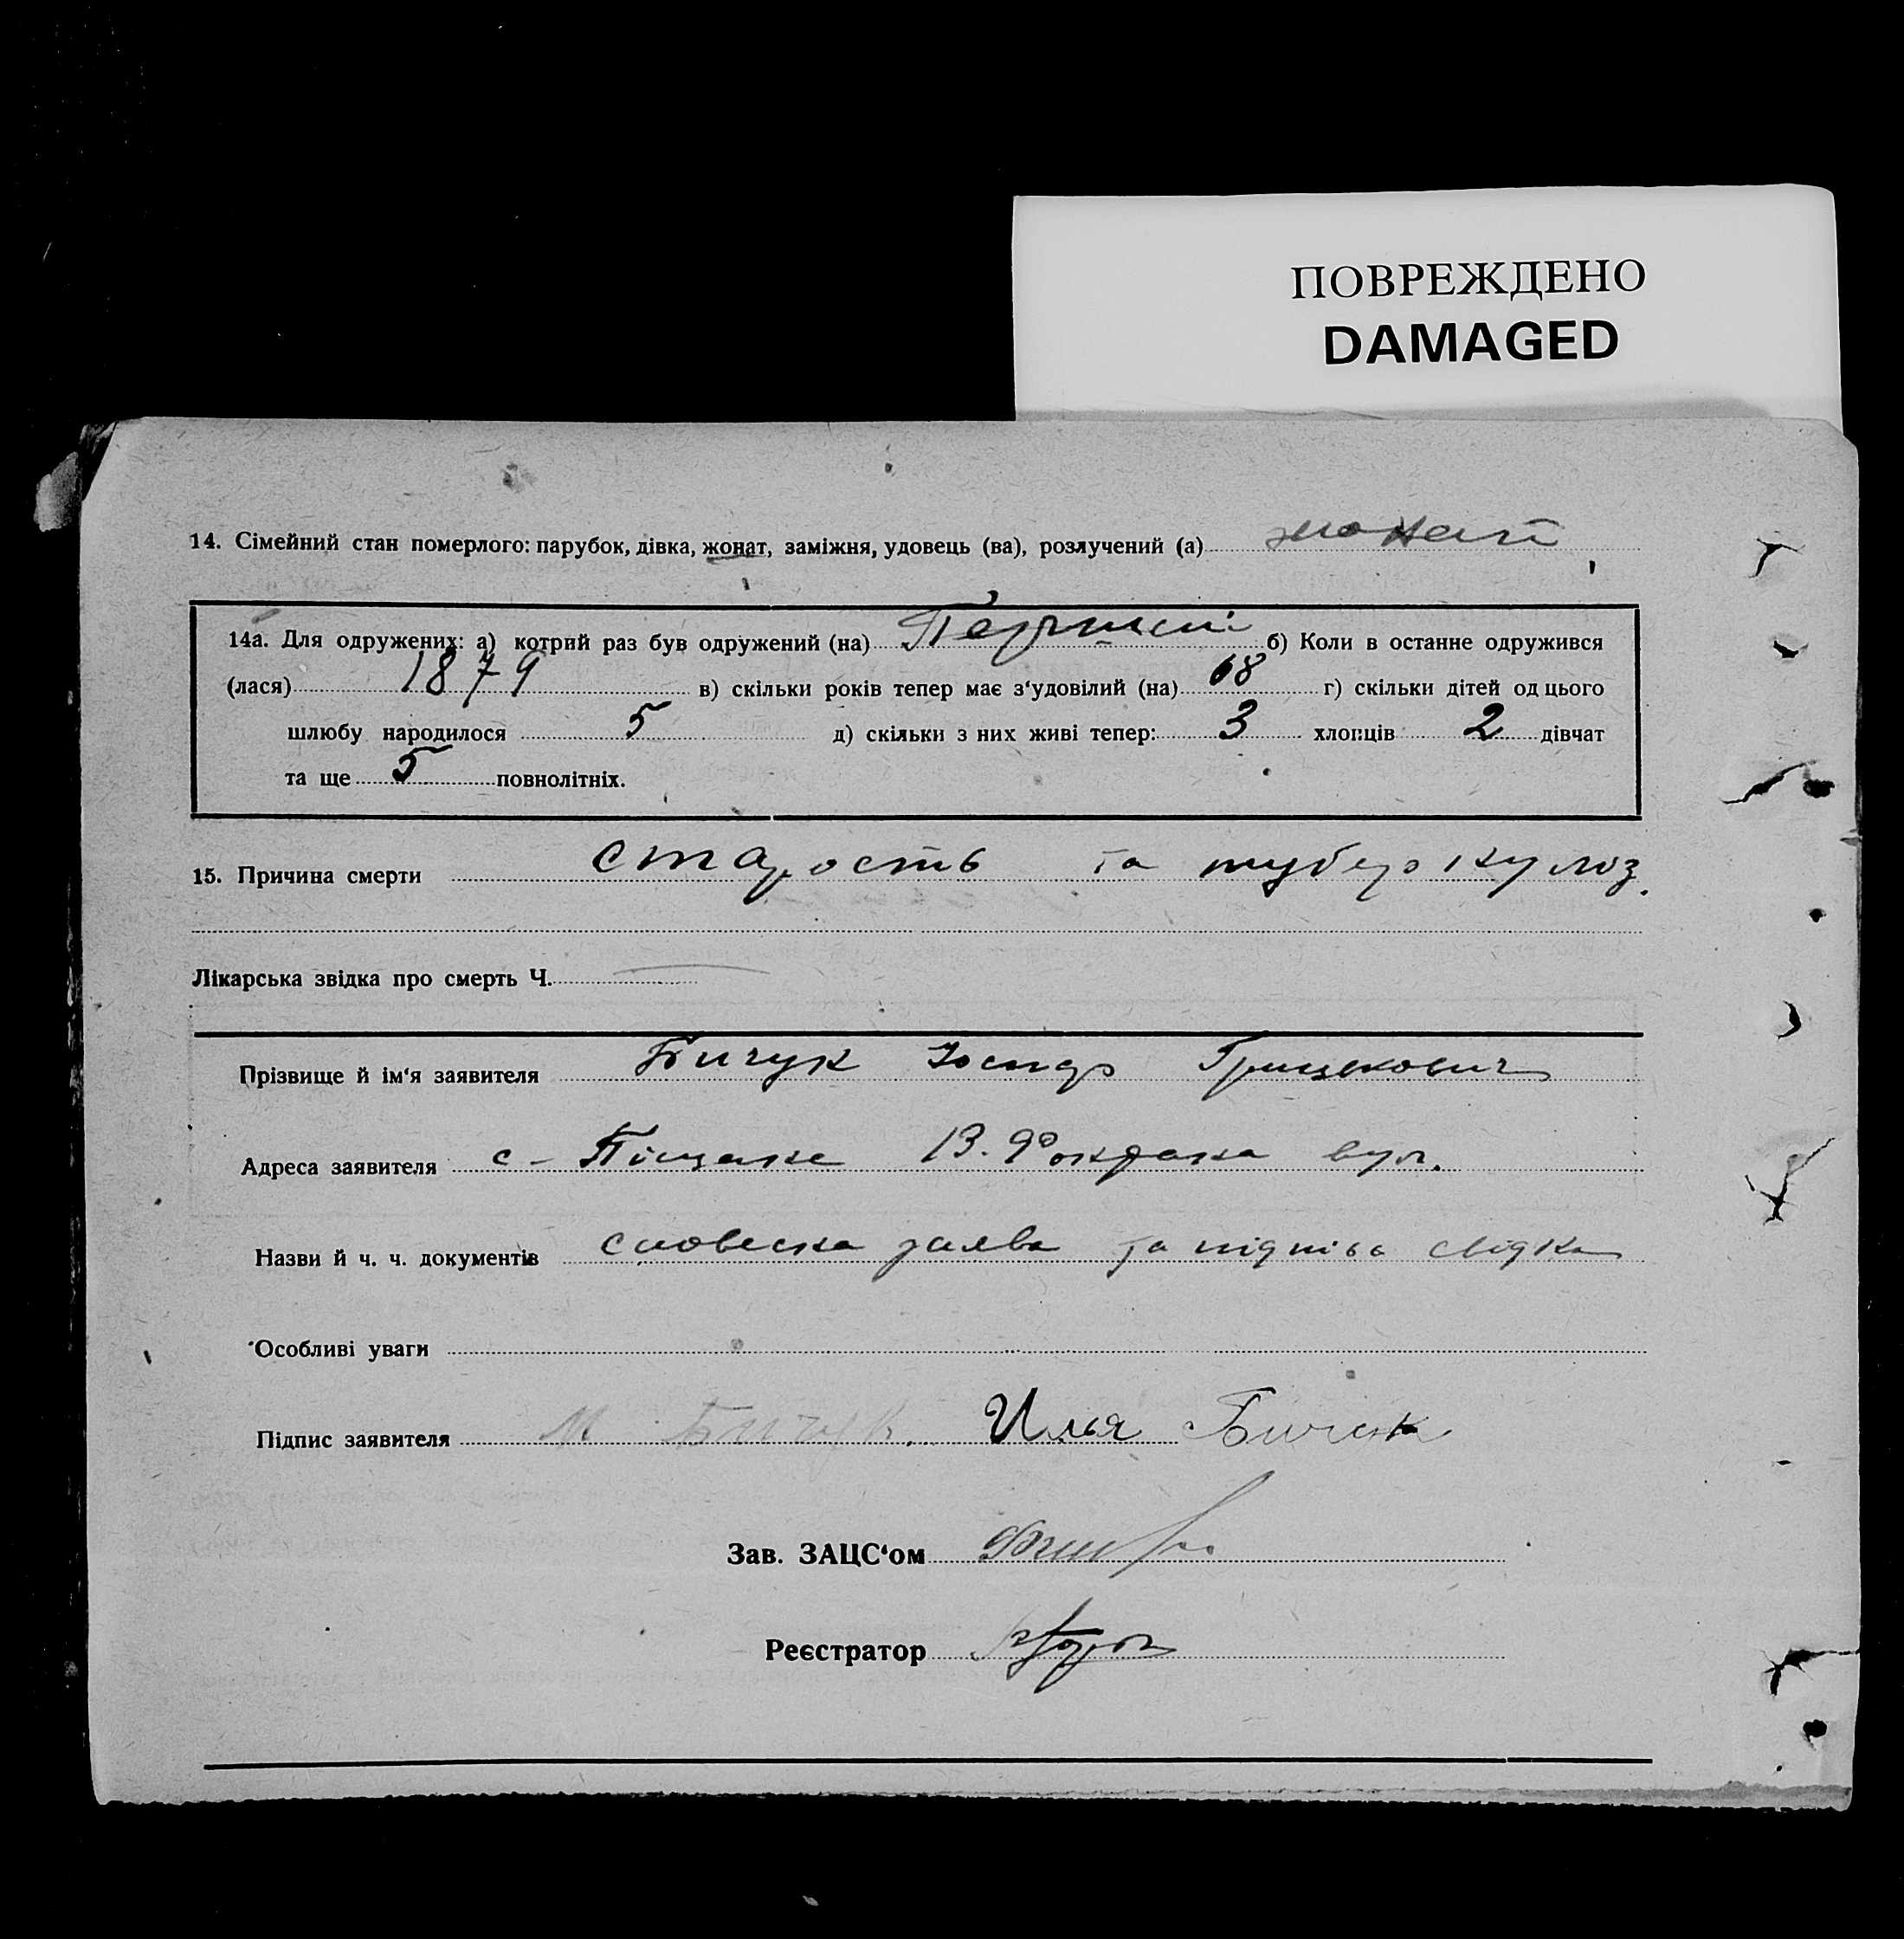 ПОВРЕЖДЕНО
DAMAGED
14. Сімейний стан померлого: парубок, дівка, жонат, заміжня, удовець (ва), розлучений (а) жонатй
14а. Для одружених: а) котрий раз був одружений (на) Перший б) Коли в останне одружився
(лася) 1879 в) скільки років тепер має з'удовілий (на) 68 г) скільки дітей од цього
шлюбу народилося 5 д) скільки з них живі тепер: 3 хлопців 2 дівчат
та ще 5 повнолітніх.
15. Причина смерти старость та туберкулоз.
Лікарська звідка про смерть Ч.
Прізвище й ім'я заявителя Бичук Грицькович
Адреса заявителя с- Піщане вул.
Назви й ч. ч. документів словесна заява та підпись свідка
Особливі уваги
Підпис заявителя И Бичук. Илья Бичук
Зав. ЗАЦС'ом
Реєстратор